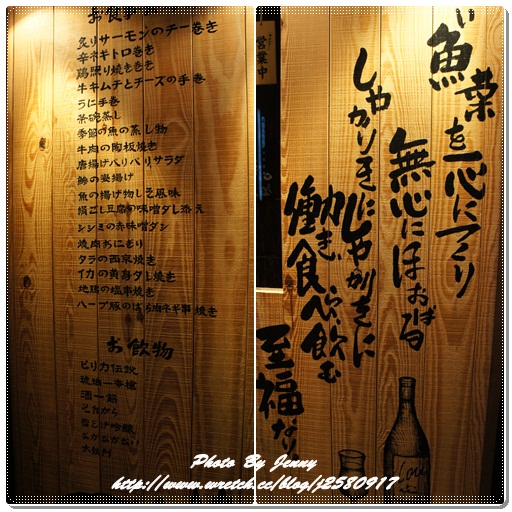 お食事
炙りサーモンのチーズ巻き
辛ネギトロ巻き
鶏照り焼き巻き
牛キムチとチーズの手巻
うに手巻
茶碗蒸し
季節の魚の蒸し物
牛肉の陶板焼き
唐揚げパリパリサラダ
鯵の姿揚げ
魚の揚げ物しそ風味
絹ごし豆腐旬味噌ダレ添え
シジミの赤味噌ダシ
焼肉おにぎり
タラの西京焼き
イカの黄身ダレ焼き
地鶏の塩串焼き
ハーブ豚のばら肉ネギ串焼き
お飲物
ピリカ伝説
酒一筋
営業中
い魚菜を一心につくり
無心にほおばる
しゃかりきに
働き
しゃかりきに
食べ飲む
至福なり
Photo By Jenny
http://www.wretch.cc/blog/j2580917